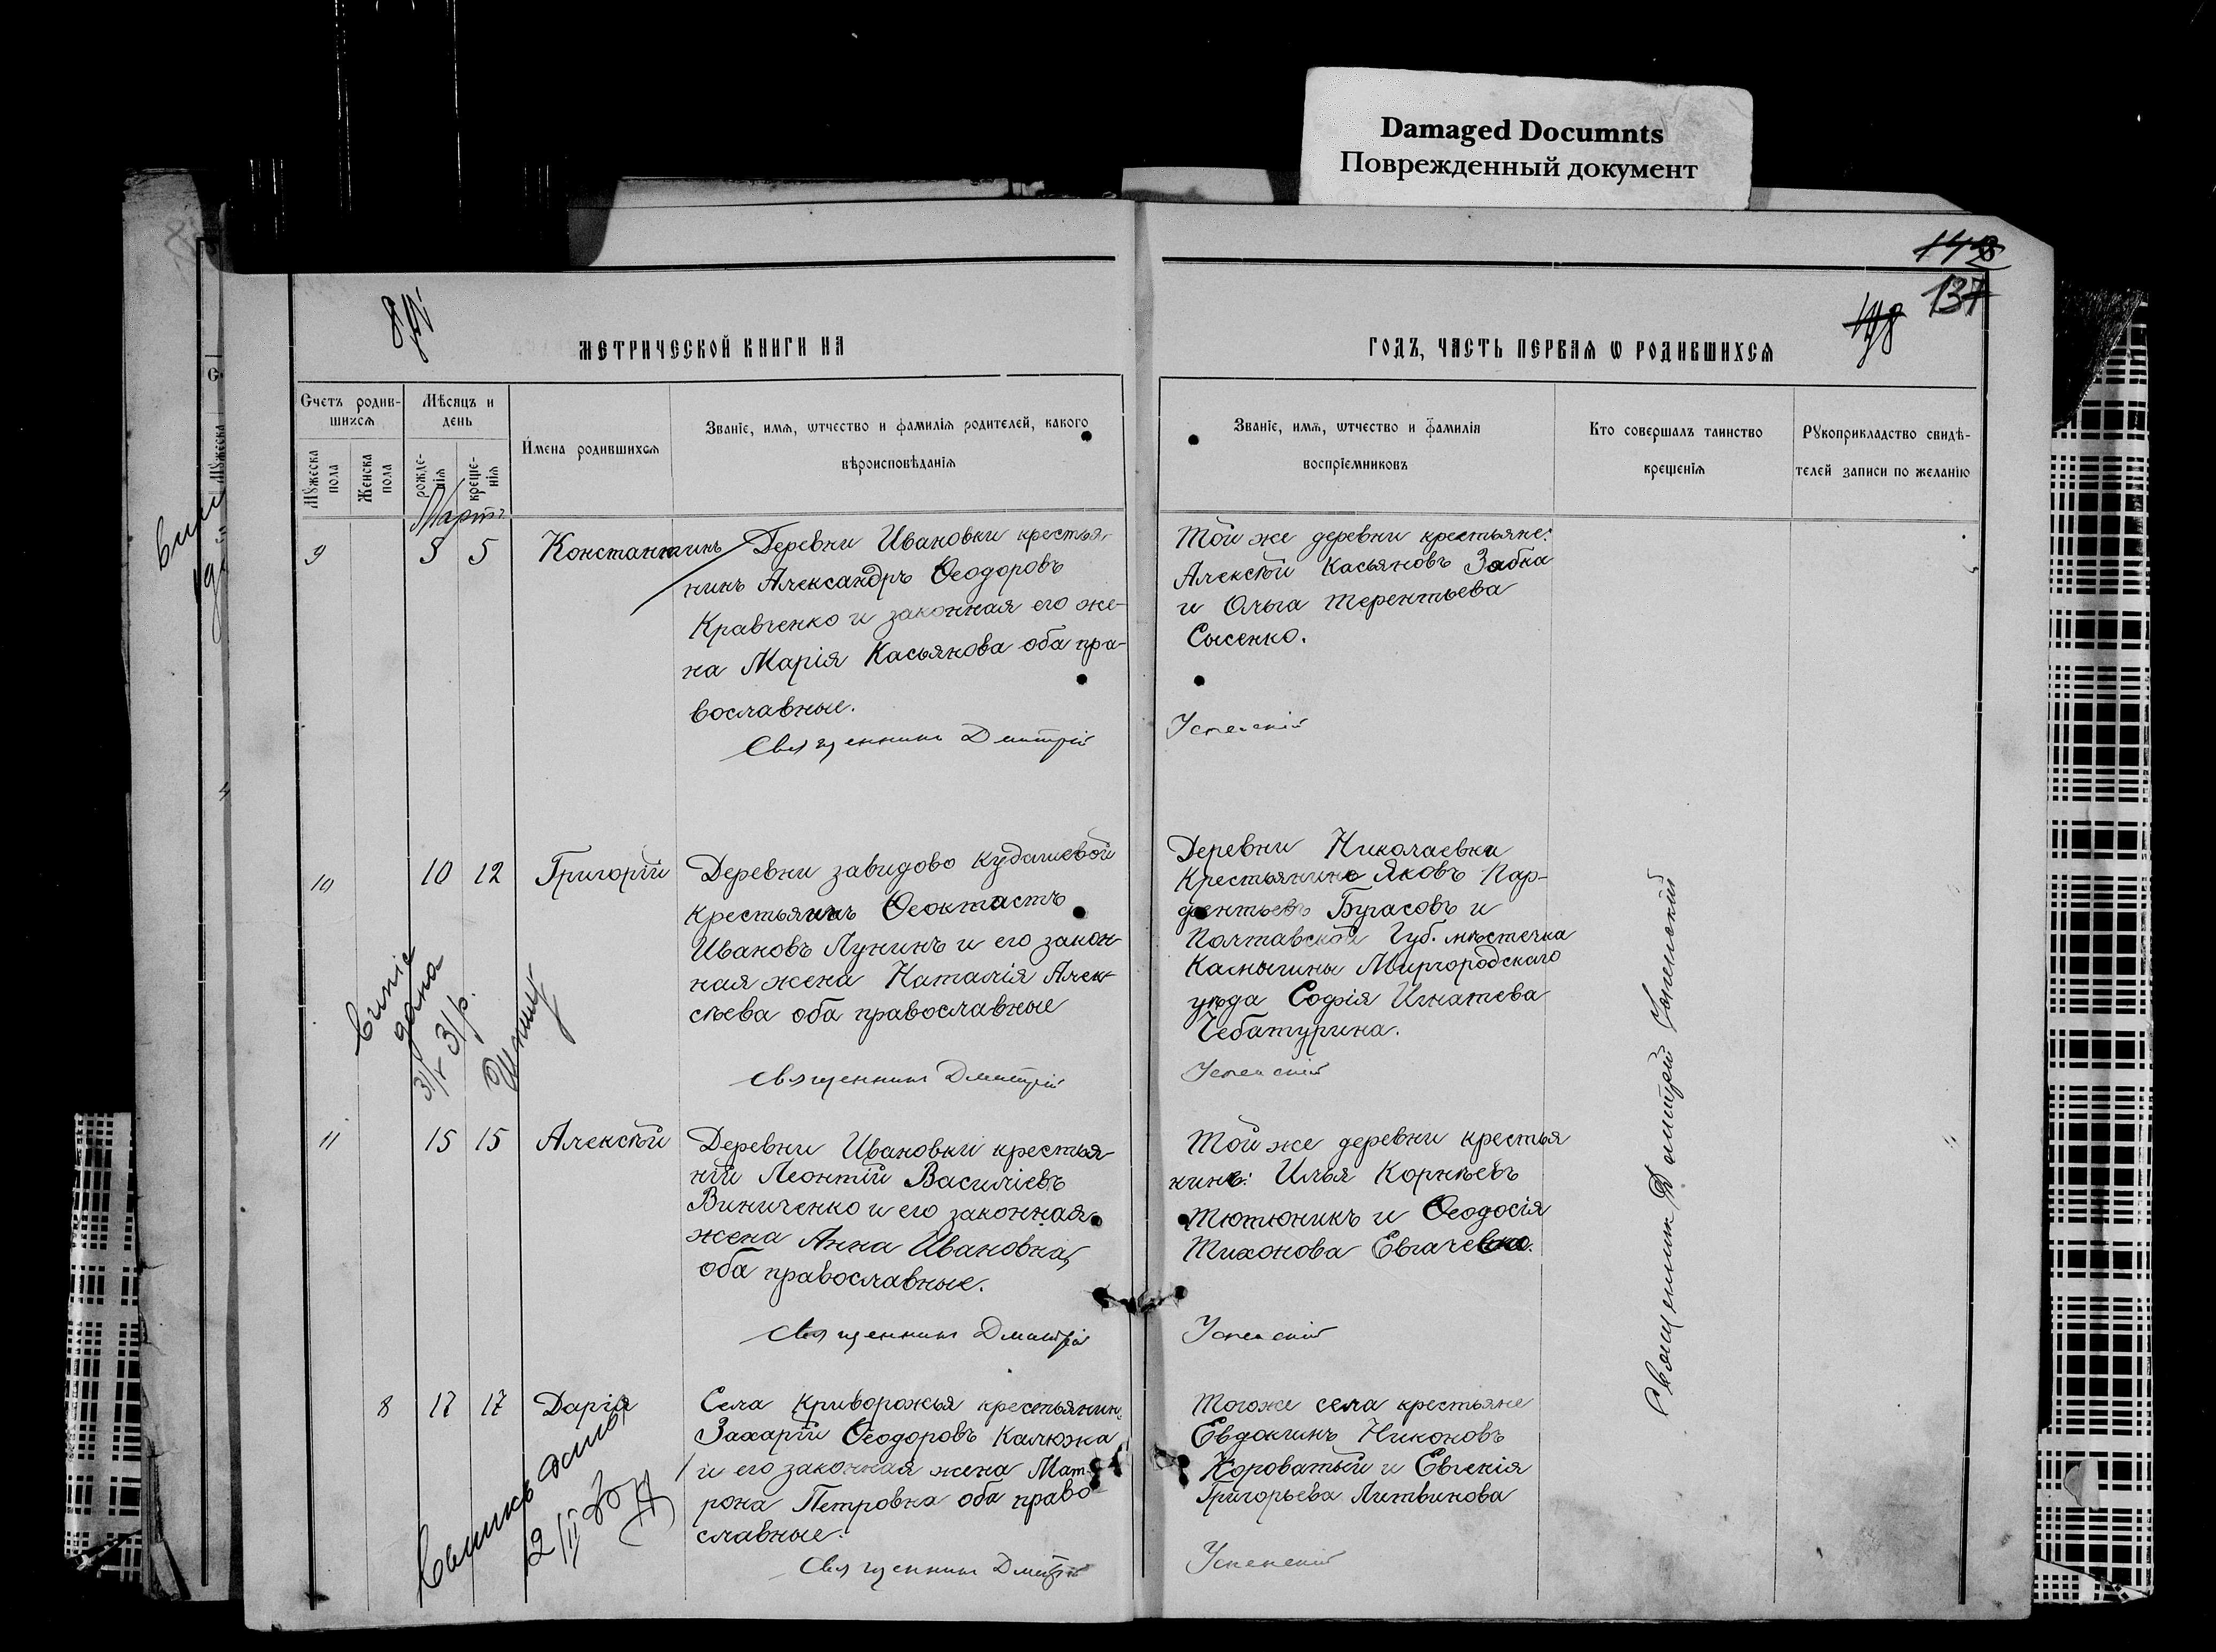 Damaged Documnts
Поврежденный документ
142
137
МЕТРИЧЕСКОЙ КНИГИ НА
ГОДЪ, ЧАСТЬ ПЕРВАЯ Ѡ РОДИВШИХСЯ
Счетъ родив-
шихся
Мѣсяцъ и
день
Мꙋжеска
пола
Женска
пола
рожде-
нія
креще-
нія
Имена родившихся
Званіе, имя, ѿчество и фамилія родителей, какого
вѣроисповѣданія
Званіе, имя, ѿчество и фамилія
воспріемниковъ
Кто совершалъ таинство
крещенія
Рꙋкоприкладство свидѣ-
телей записи по желанію
Мартъ
9
5 5
Константинъ
Деревни Ивановки крестья-
нинъ Александръ Ѳеодоровъ
Кравченко и законная его же-
на Марія Касьянова оба пра-
вославные.
Священникъ Дмитрій
Той же деревни крестьяне:
Алексѣй Касьяновъ Забка
и Ольга Терентьева
Сысенко.
Успенскій
10
10 12
Григорій
Деревни завидово Кудашевой
крестьянинъ Ѳеоктастъ
Ивановъ Лунинъ и его закон-
ная жена Наталія Алек-
сѣева оба православные
Священникъ Дмитрій
Деревни Николаевки
Крестьянинъ Яковъ Пар-
фентьевъ Бугасовъ и
Полтавской Губ. мѣстечка
Миргородскаго
уѣзда Софія Игнатева
Чебатурина.
Успенскій
дана
11
15 15
Алексѣй
Деревни Ивановки крестья-
ній Леонтій Василіевъ
Виниченко и его законная
жена Анна Ивановна,
оба православные.
Священникъ Дмитрій
Той же деревни крестья
нинъ: Илья Корнѣевъ
Тютюникъ и Ѳеодосія
Тихонова
Успенскій
8
17 17
Дарія
Села Криворожья крестьянинъ
Захарій Ѳеодоровъ Калюжка
и его законная жена Мат-
рона Петровна оба право
славные.
Священникъ Дмитрій
Тогоже села крестьяне
Евдокимъ Никоновъ
Короватый и Евгенія
Григорьева Литвинова
Успенскій
Священникъ Димитрій Успенскій